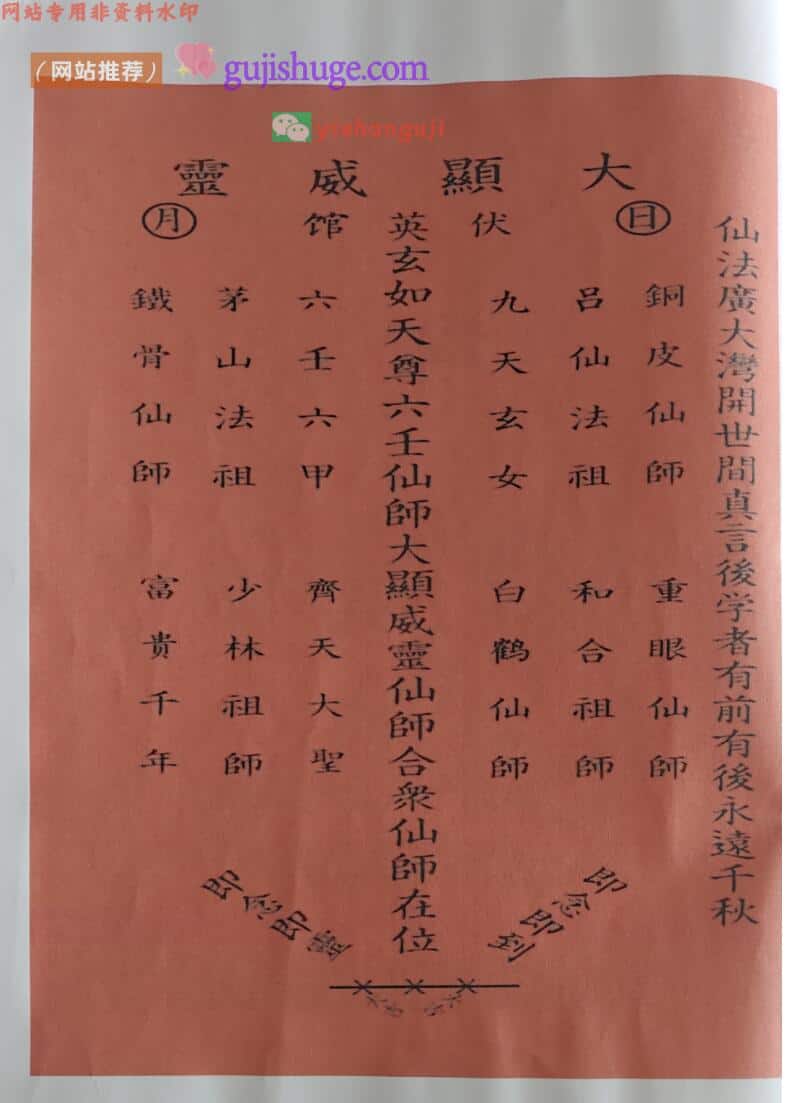 网站专用非资料水印
（网站推荐）
gujishuge.com
yishanguji
大顯威靈
仙法廣大灣開世間真言後学者有前有後永遠千秋
日
銅皮仙師 重眼仙師
吕仙法祖 和合祖師
伏
九天玄女 白鹤仙師
英玄如天尊六壬仙師大顯威靈仙師合衆仙師在位
馆
六壬六甲 齊天大聖
茅山法祖 少林祖師
月
鐵骨仙師 富贵千年
即念即到
即念即靈